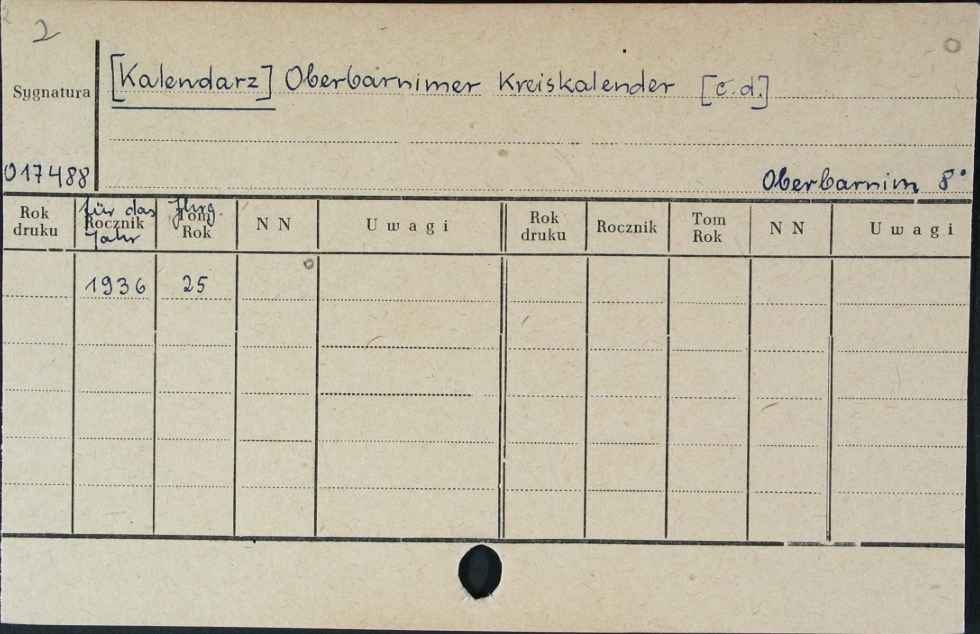 2
[Kalendarz] Oberbarnimer Kreiskalender [c.d.]
Sygnatura
017488
Oberbarnim 8°
Rok druku
für das Rocznik Jahr
Jhrg. Tom Rok
N N
Uwagi
Rok druku
Rocznik
Tom Rok
N N
Uwagi
1936 25